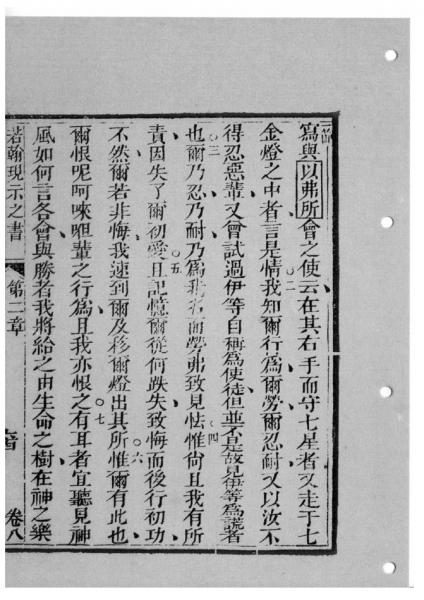 寫與以弗所會之使云在其右手而守七星者又走于七
金燈之中者言是情我知爾行爲爾勞爾忍耐又以汝不
得忍惡輩又曾試過伊等自稱爲使徒但並不是故見伊等爲謊者
也爾乃忍乃耐乃爲我名而勞弗致見怯惟尙且我有所
責因失了爾初愛且記憶爾從何跌失致悔而後行初功
不然爾若非悔我速到爾及移爾燈出其所惟爾有此也
爾恨呢哥咪呾輩之行爲且我亦恨之有耳者宜聽見神
風如何言各會與勝者我將給之由生命之樹在神之樂
若翰現示之書 第二章 卷八